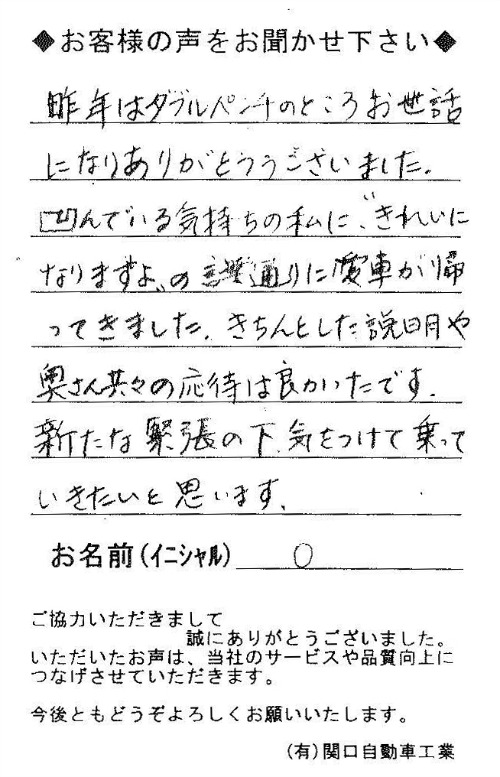 ◆お客様の声をお聞かせ下さい◆
昨年はダブルパンチのところお世話
になりありがとううございました。
凹んでいる気持ちの私に、〝きれいに
なりますよ〟の言葉通りに愛車が帰
ってきました。きちんとした説明や
奥さん共々の応待は良かったです。
新たな緊張の下、気をつけて乗って
いきたいと思います。
お名前(イニシャル) O
ご協力いただきまして
誠にありがとうございました。
いただいたお声は、当社のサービスや品質向上に
つなげさせていただきます。
今後ともどうぞよろしくお願いいたします。
(有)関口自動車工業